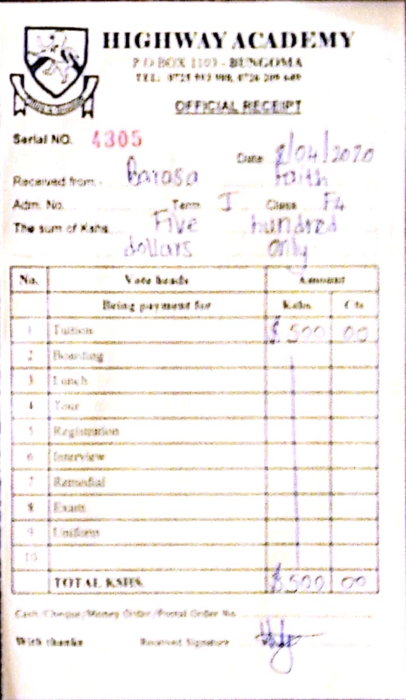 HIGHWAY ACADEMY
P.O BOX 1103 - BUNGOMA
OFFICIAL RECEIPT
Serial NO. 4305
Date 8/04/2020
Received from:- Barasa Faith
Adm. No. Term I Class F4
The sum of Kshs. Five hundred
dollars only
No. Vote heads Amount
Being payment for Kshs. Cts
1 Tuition $ 500 00
2 Boarding
3 Lunch
4 Tour
5 Registration
6 Interview
7 Remedial
8 Exam
9 Uniform
10
TOTAL KSHS. $ 500 00
Cash/Cheque/Money Order/Postal Order No.
With thanks Received Signature